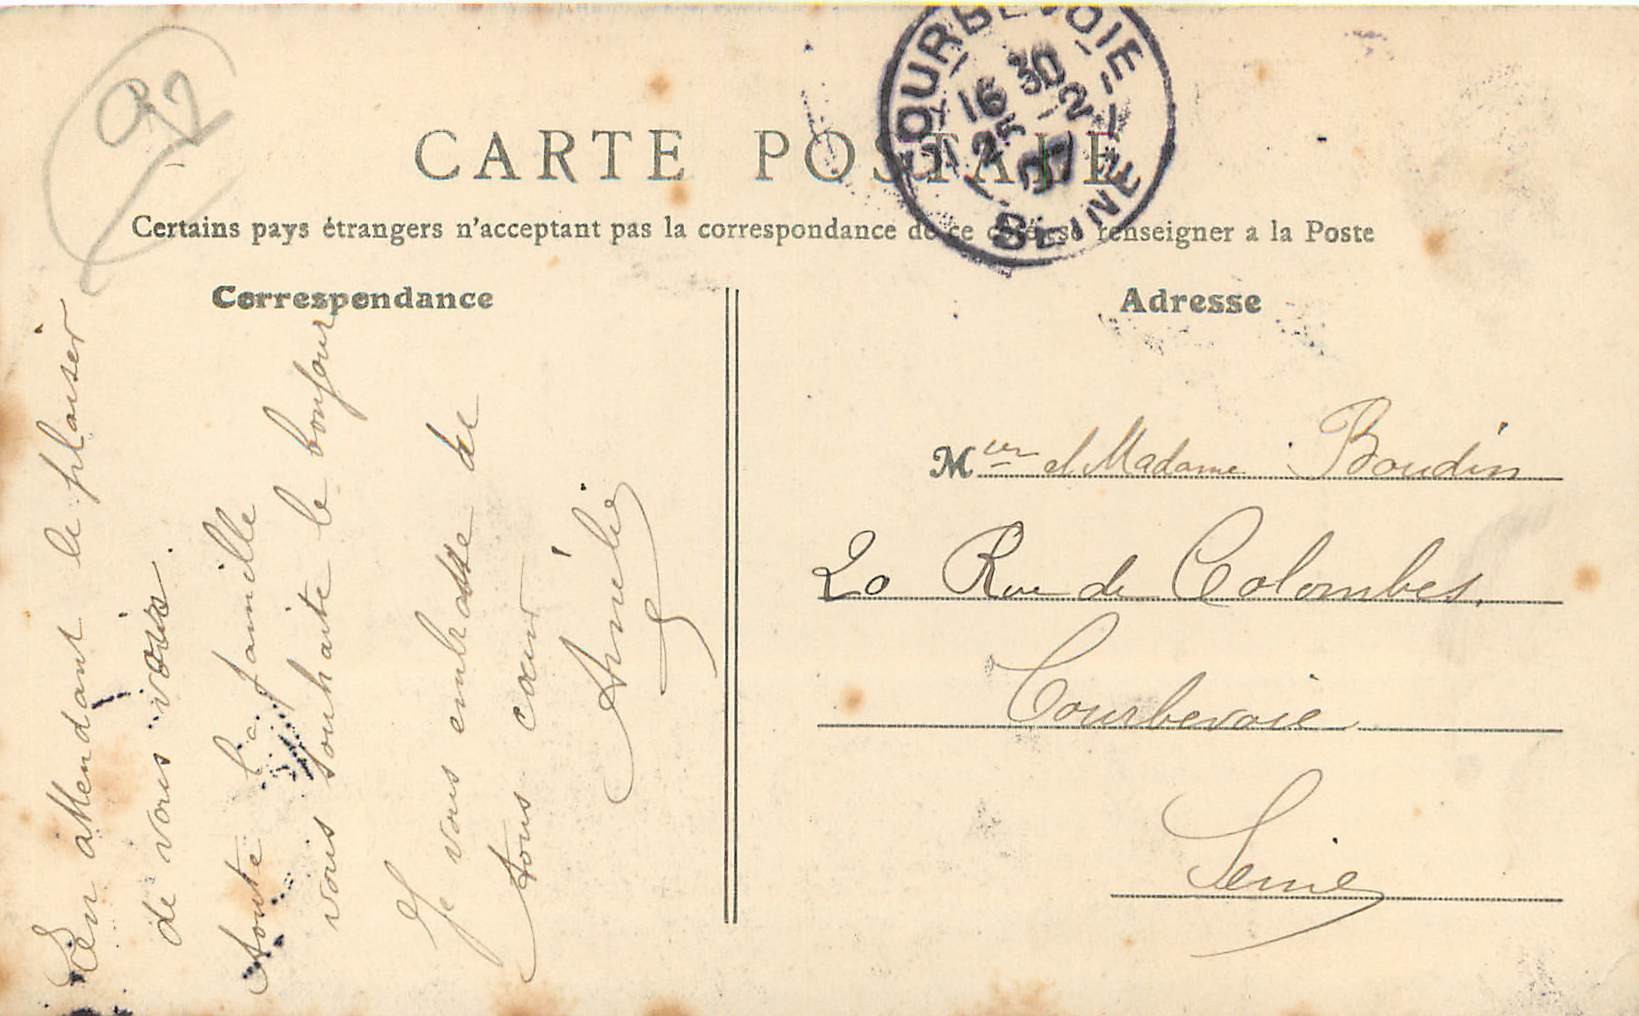 92
CARTE POSTALE
Certains pays étrangers n'acceptant pas la correspondance de ce côté, se renseigner a la Poste
COURBEVOIE
16 30
25 -2
07
SEINE
Correspondance
En attendant le plaisir
de vous voir.
toute la famille
vous souhaite le bonjour
Je vous embrasse de
tous cœur
Amélie
Adresse
Mieur et Madame Boudin
20 Rue de Colombes.
Courbevoie
Seine